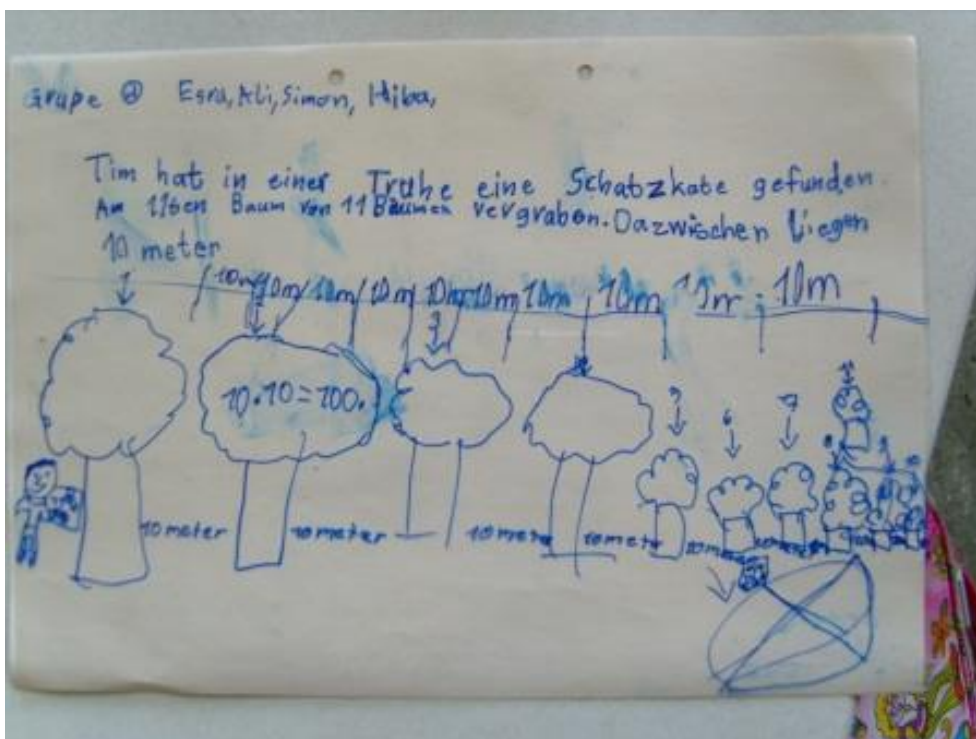 Grupe @ Esra, Ali, Simon, Hiba,
Tim hat in einer Truhe eine Schatzkate gefunden.
Am 11ten Baum von 11 Bäumen vergraben. Dazwischen liegen
10 meter
10m 10m 10m 10m 10m 10m 10m 10m 10m 10m
1 3
10•10=100.
5 6 7 11
10 meter 10 meter 10 meter 10 meter 10 meter